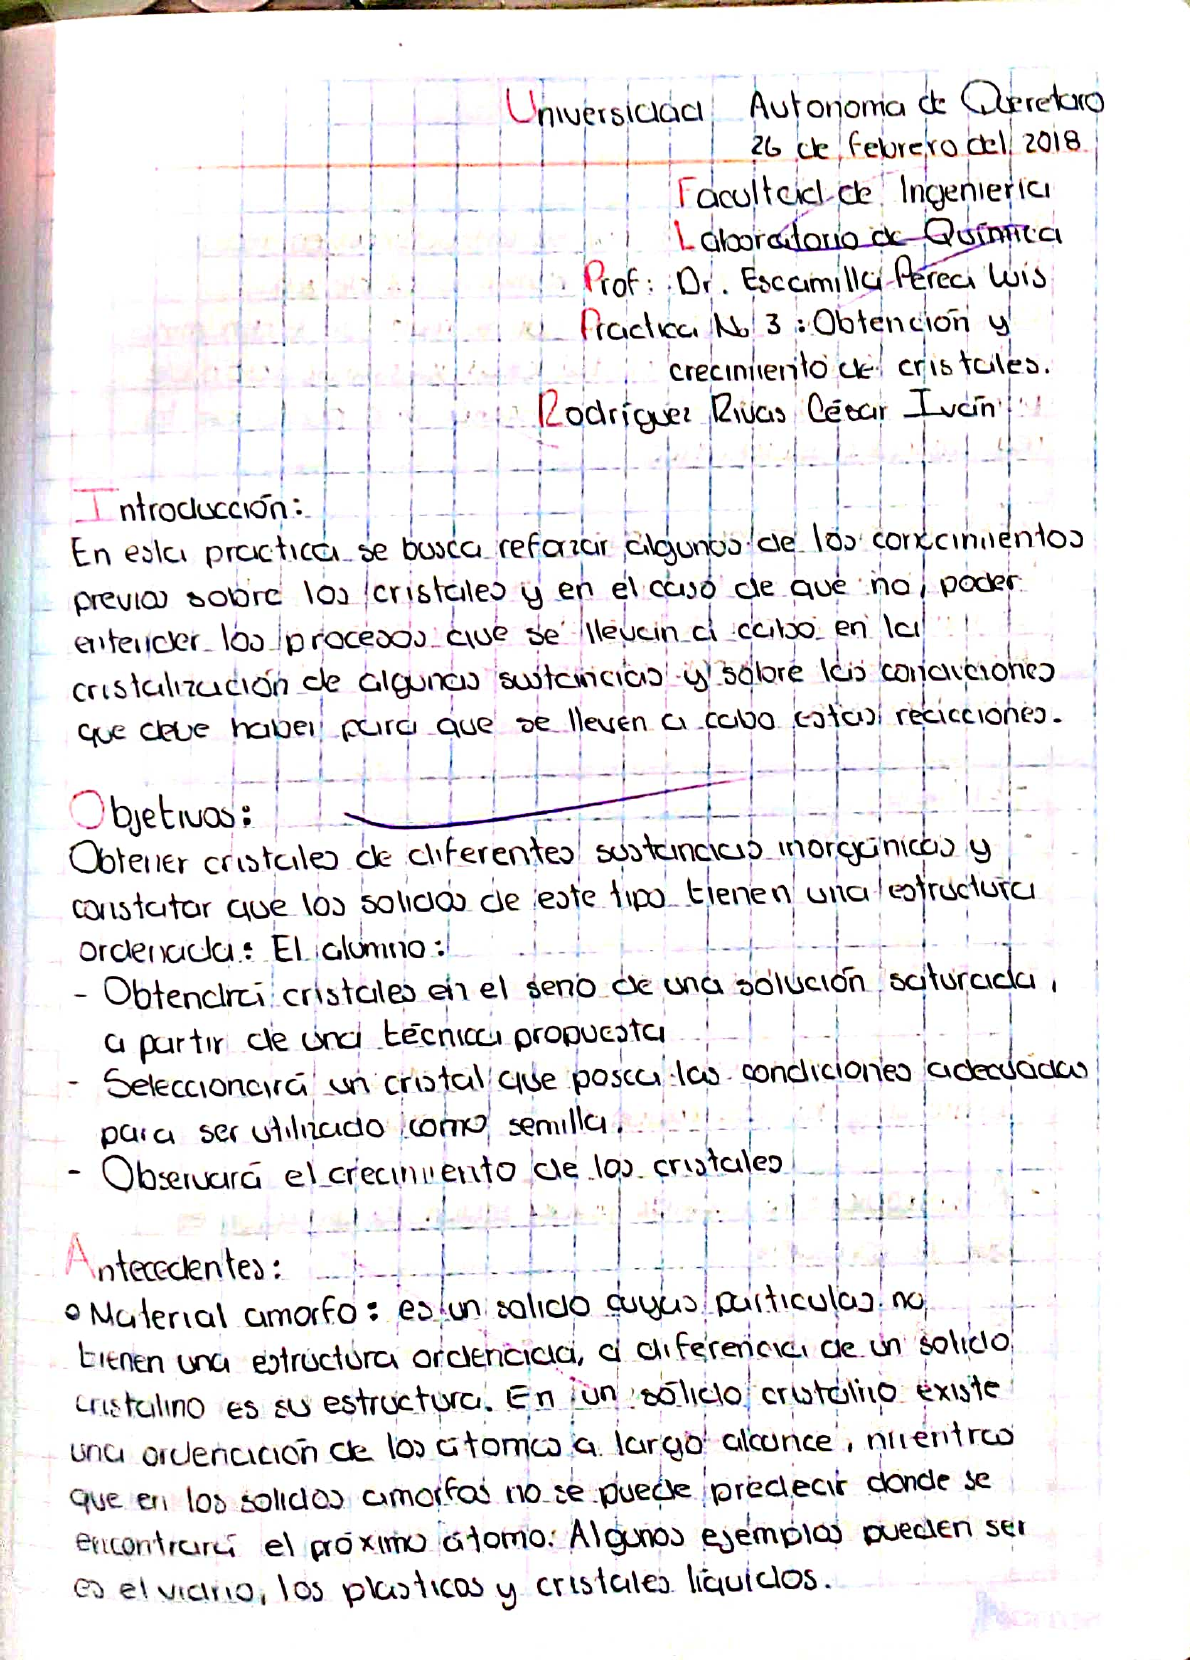 Universidad Autonoma de Queretaro
26 de febrero del 2018
Facultad de Ingenieria
Laboratorio de Química
Prof: Dr. Escamilla Perea Luis
Practica No 3 : Obtención y
crecimiento de cristales.
Rodríguez Rivas César Iván
Introducción:
En esta practica se busca reforzar algunos de los conocimientos
previos sobre los cristales y en el caso de que no, poder
entender los procesos que se llevan a cabo en la
cristalización de algunas sustancias y sobre las condiciones
que debe haber para que se lleven a cabo estas reacciones.
Objetivos:
Obtener cristales de diferentes sustancias inorgánicas y
constatar que los solidos de este tipo tienen una estructura
ordenada: El alumno:
- Obtendrá cristales en el seno de una solución saturada,
a partir de una técnica propuesta
- Seleccionará un cristal que posea las condiciones adecuadas
para ser utilizado como semilla.
- Observará el crecimiento de los cristales
Antecedentes:
° Material amorfo: es un solido cuyas particulas no
tienen una estructura ordenada, a diferencia de un solido
cristalino es su estructura. En un sólido cristalino existe
una ordenación de los átomos a largo alcance, mientras
que en los solidos amorfos no se puede predecir donde se
encontrará el próximo átomo. Algunos ejemplos pueden ser
es el vidrio, los plasticos y cristales líquidos.